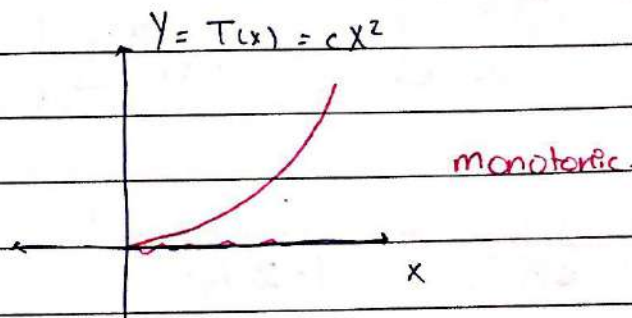 Y = T(x) = cX²
monotonic.
X